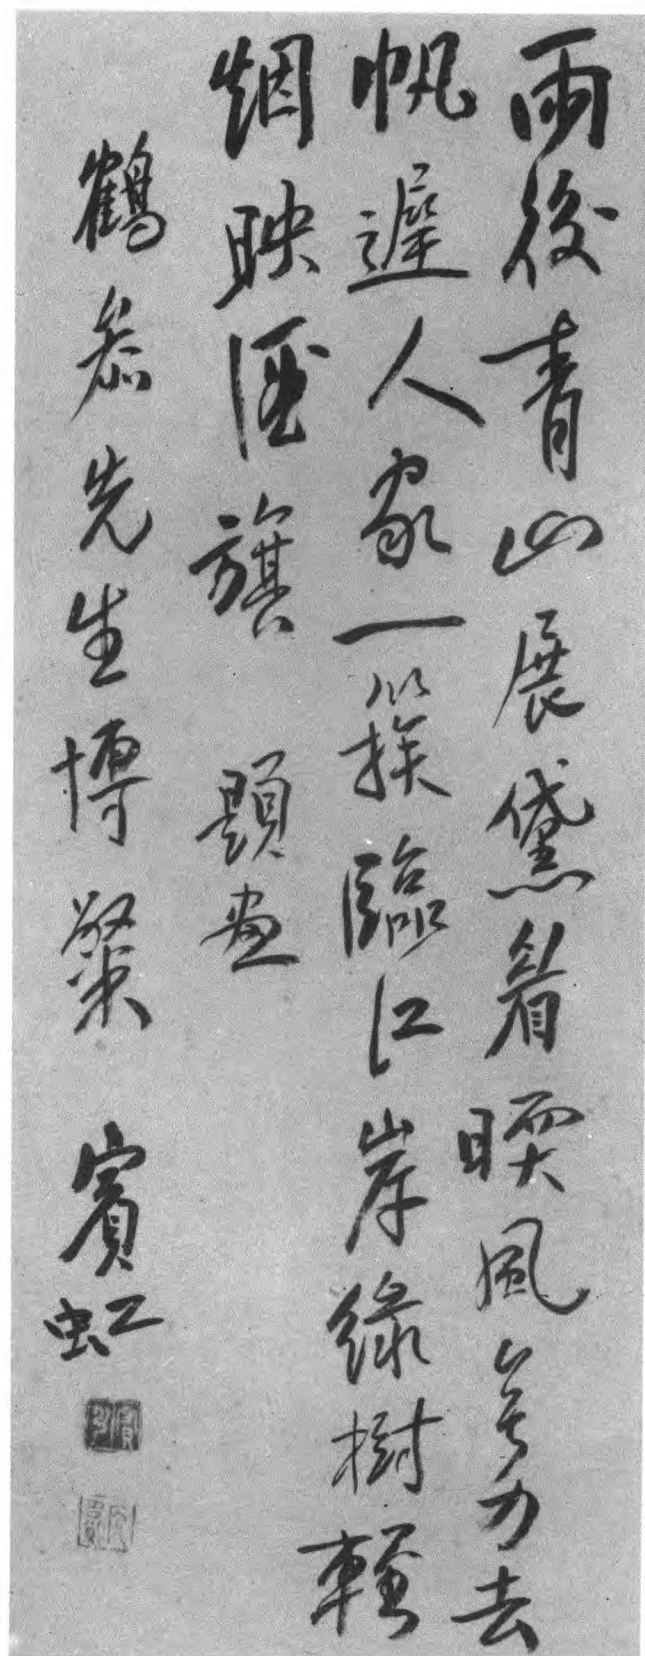 雨後青山展黛眉暖風無力去
帆遲人家一簇臨江岸綠樹輕
烟映酒旗 題畫
鶴忝先生博粲 賓虹